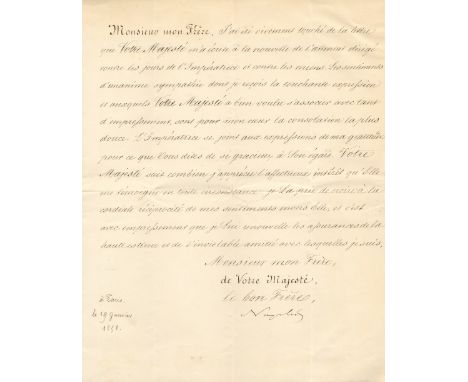 Monsieur mon Frère, J'ai été vivement touché de la lettre
que Votre Majesté m'a écrite à la nouvelle de l'attentat dirigé
contre les jours de l'Impératrice et contre les miens. Les sentiments
d'unanime sympathie dont je reçois la touchante expression
et auxquels Votre Majesté a bien voulu s'associer avec tant
d'empressement, sont pour mon cœur la consolation la plus
douce. L'Impératrice se joint aux expressions de ma gratitude
pour ce que Vous dites de si gracieux à Son égard. Votre
Majesté sait combien j'apprécie l'affectueux intérêt qu'Elle
me témoigne en toute circonstance. Je La prie de croire à la
cordiale réciprocité de mes sentiments envers Elle, et c'est
avec empressement que je Lui renouvelle les assurances de la
haute estime et de l'inviolable amitié avec lesquelles je suis,
Monsieur mon Frère,
de Votre Majesté,
le bon Frère,
Napoléon
à Paris
le 19 Janvier
1858.